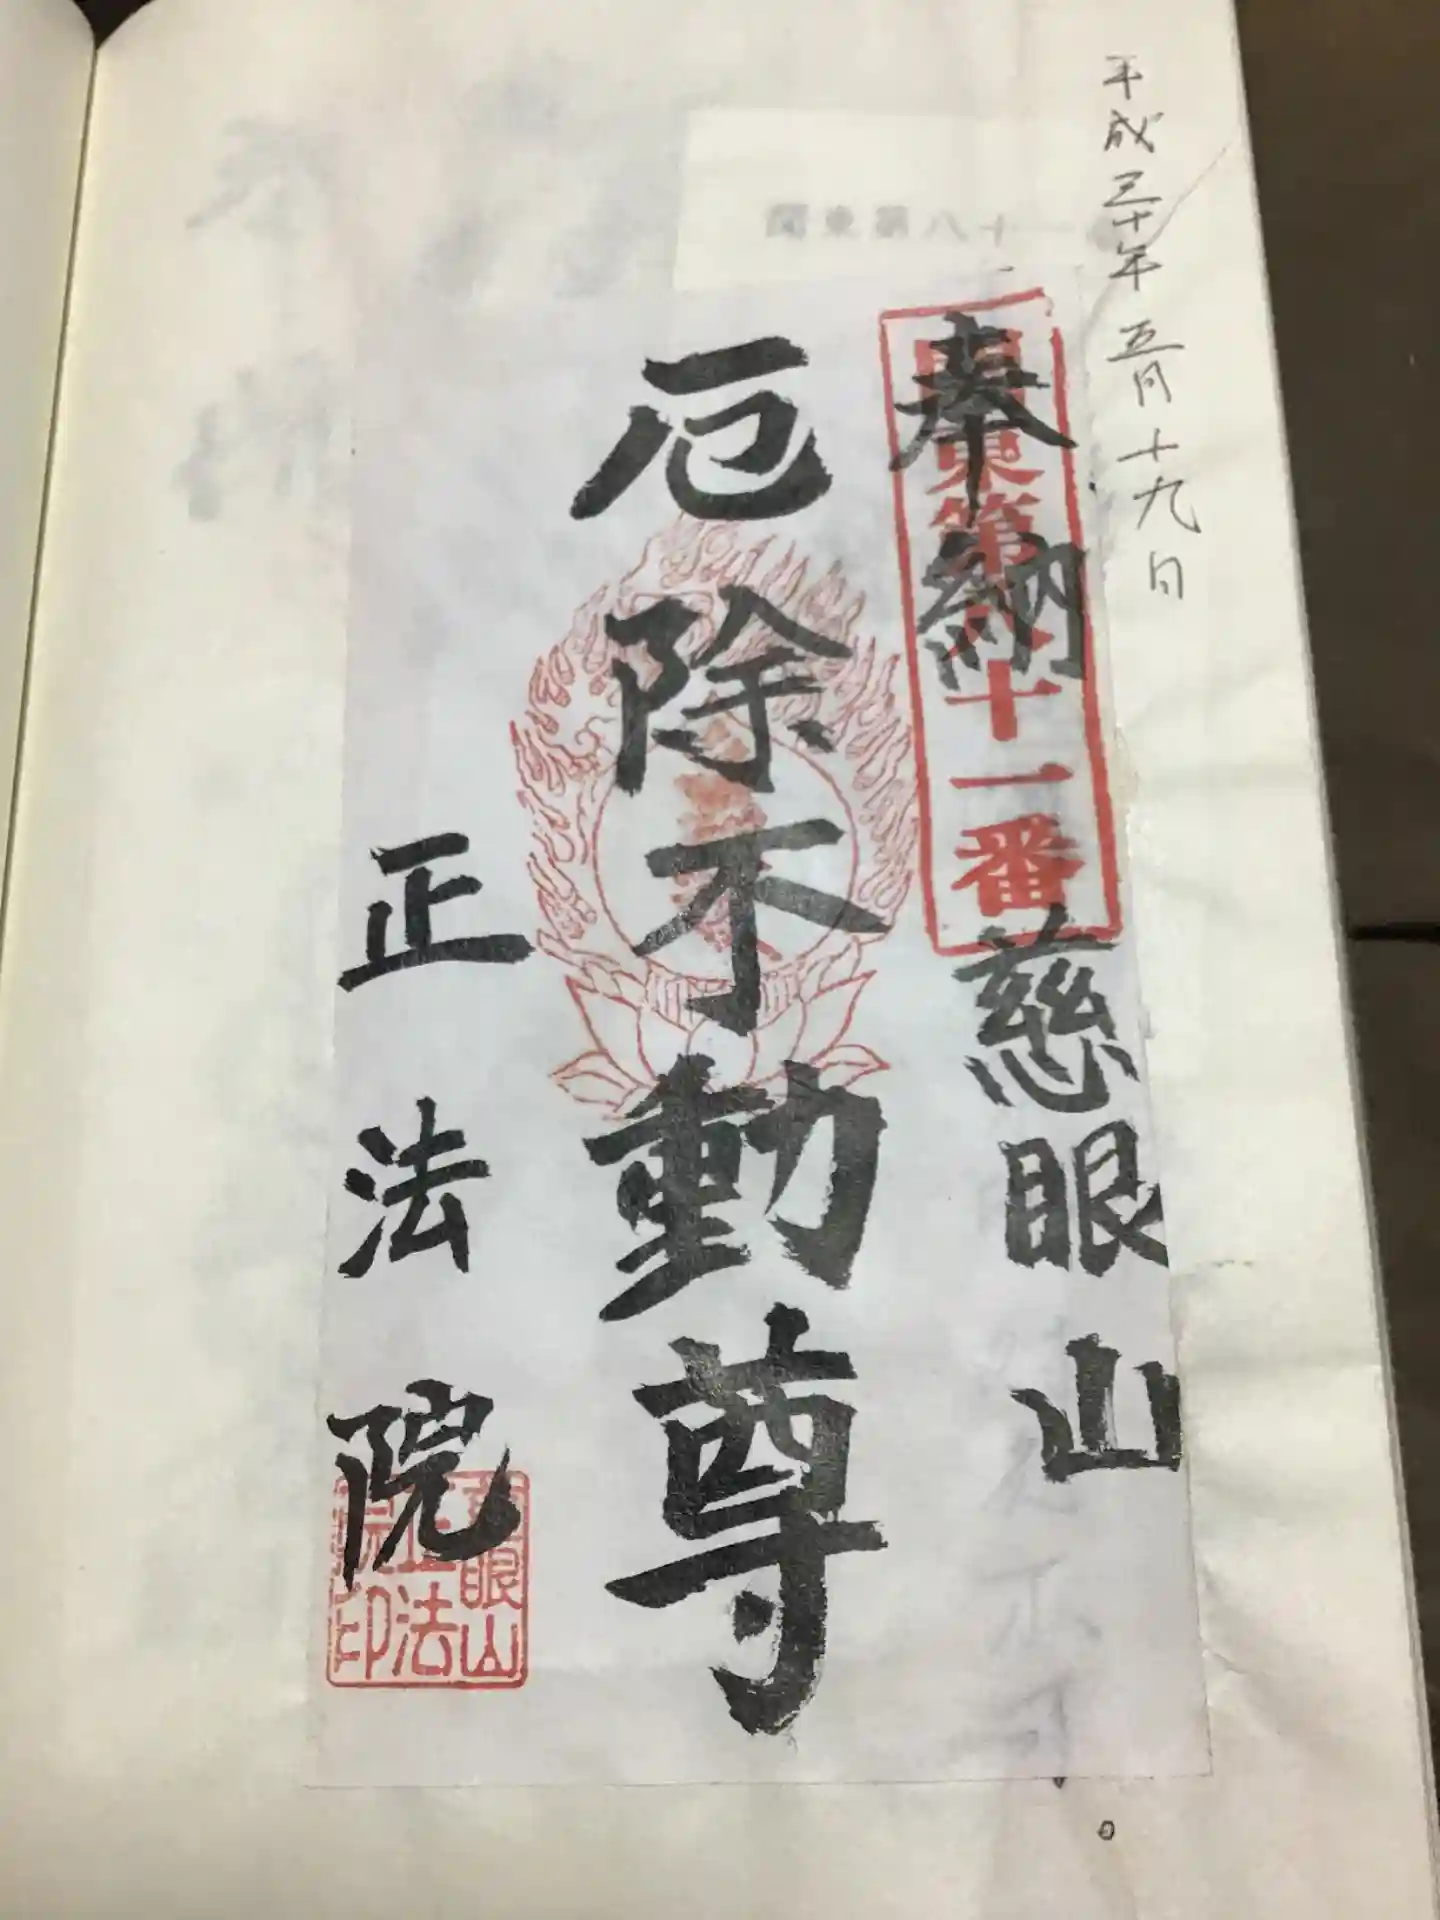 平成三十年五月十九日
関東第八十一番
奉納 慈眼山
厄除不動尊
正法院
慈眼山
正法
院印